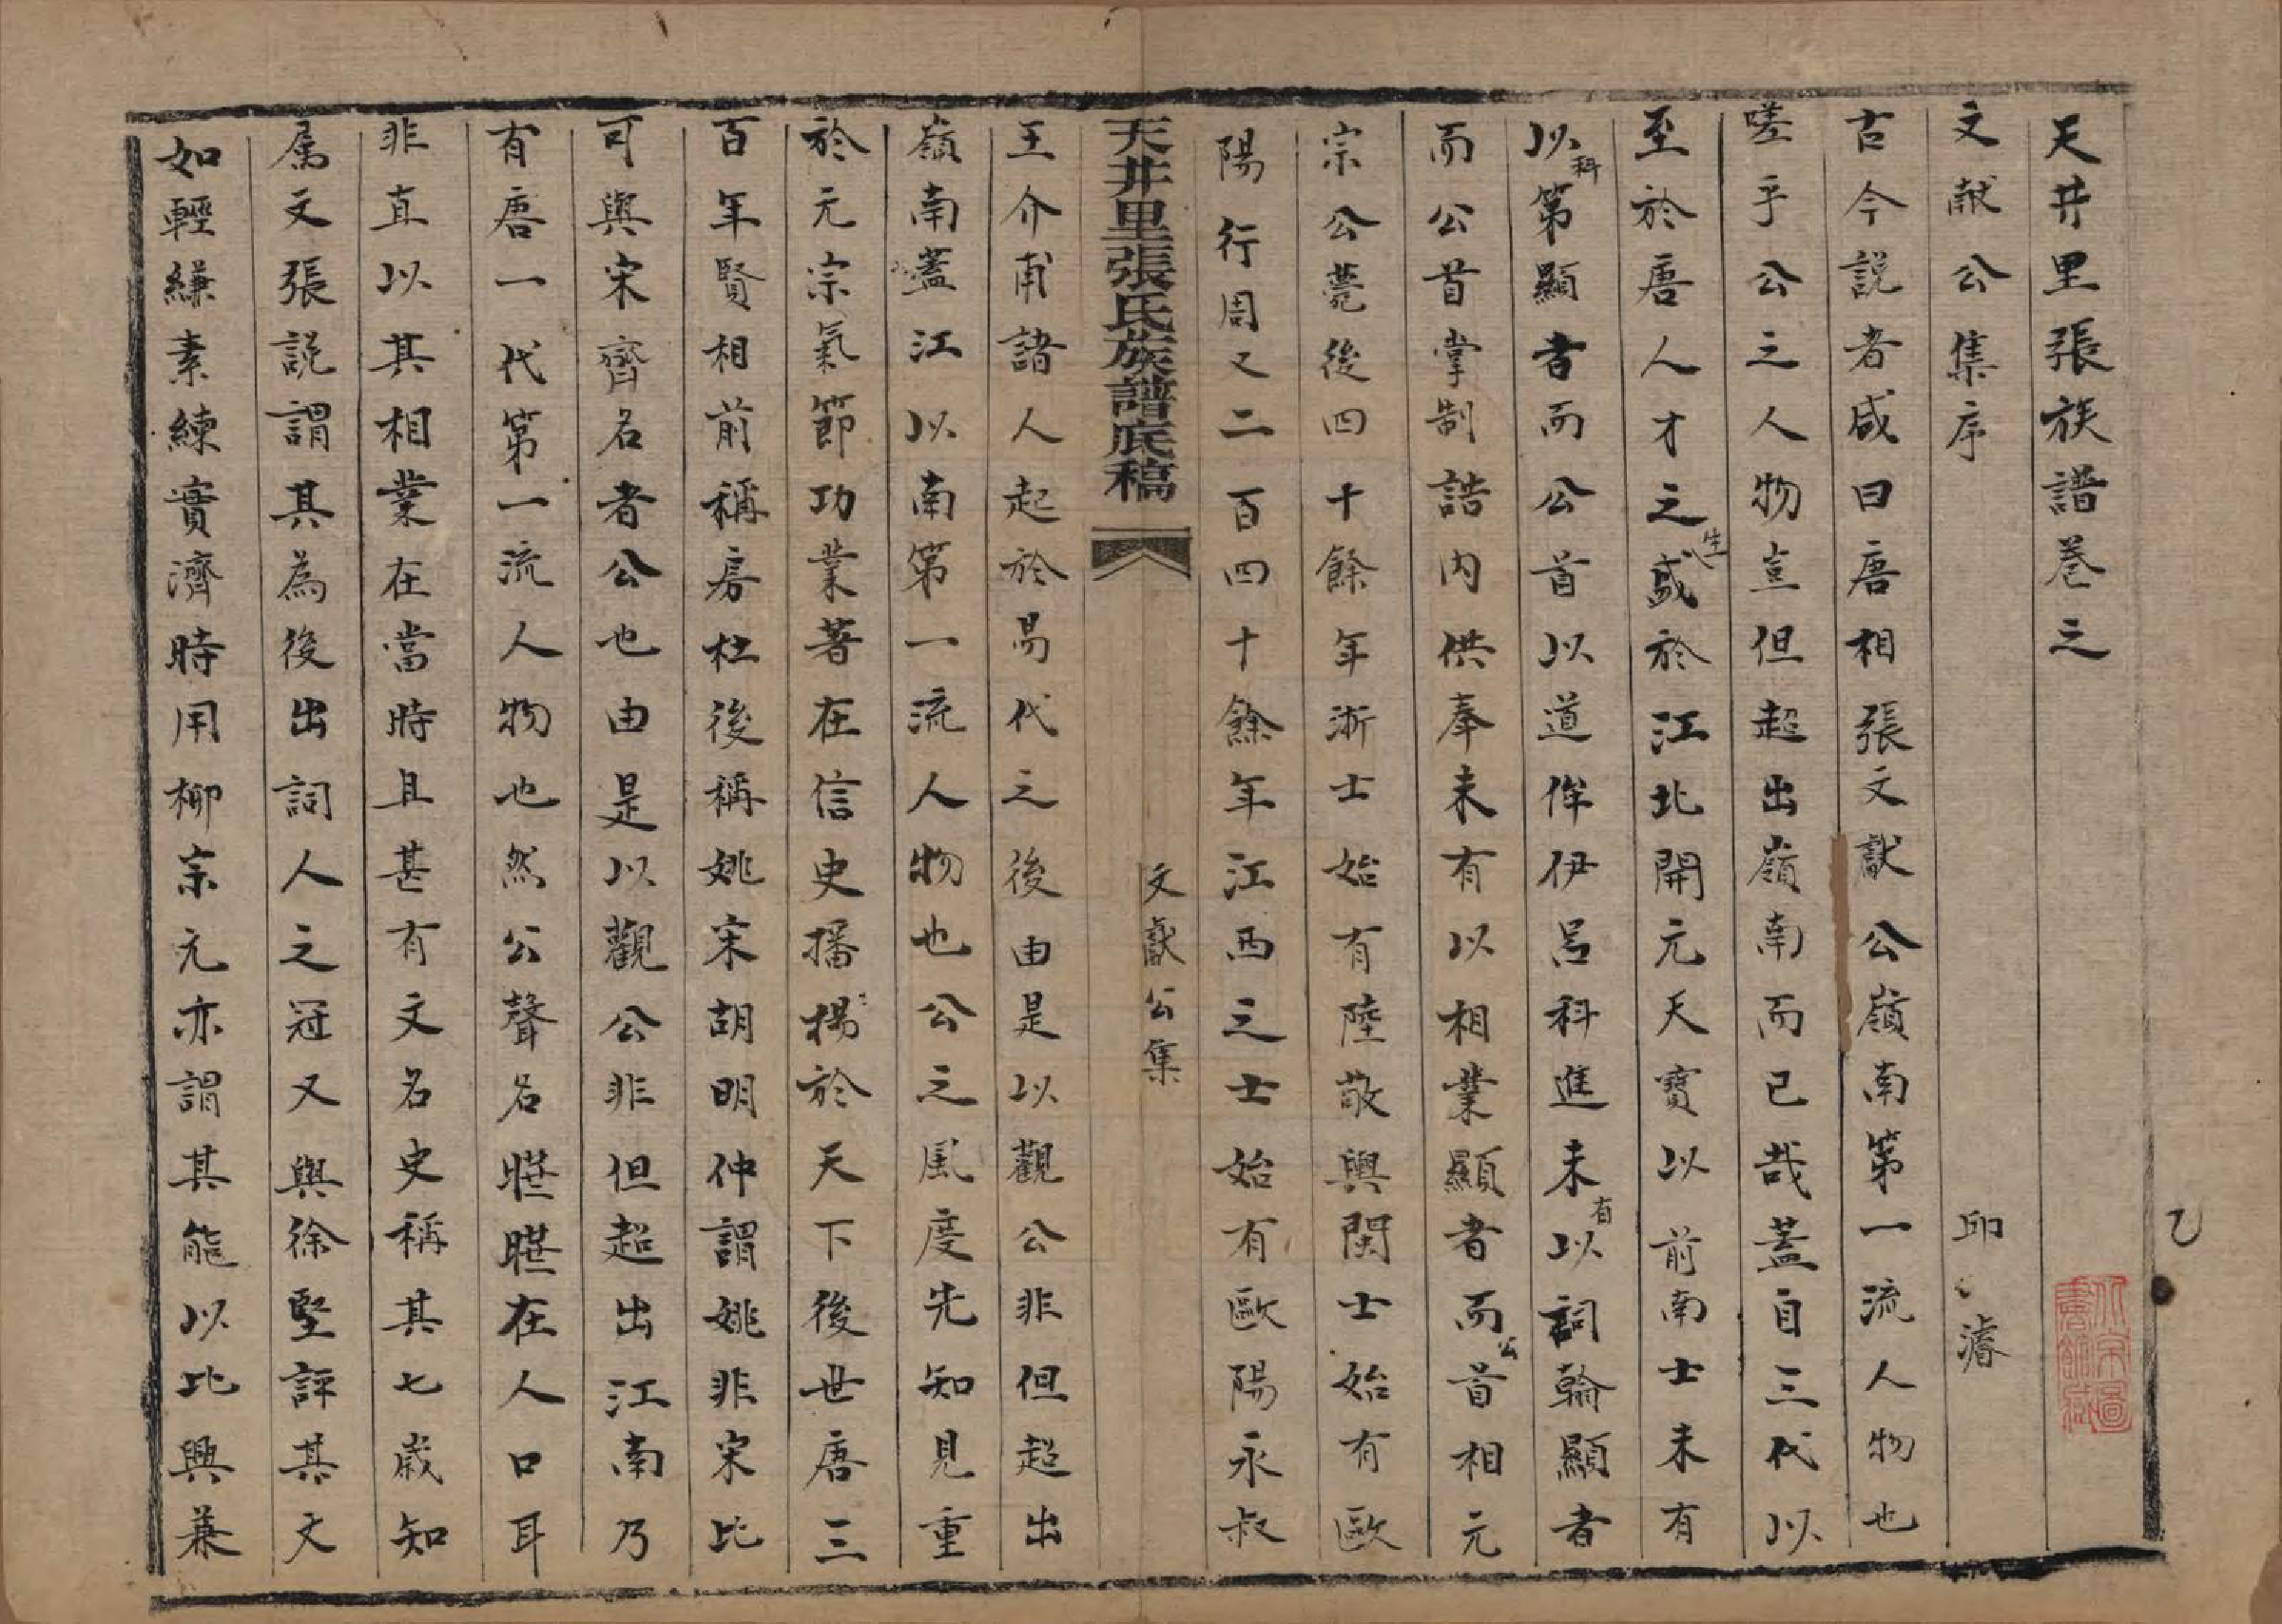 天井里張族譜卷之
文獻公集序 邱濬
古今説者咸曰唐相張文獻公嶺南第一流人物也
嗟乎公之人物豈但超出嶺南而已哉蓋自三代以
至於唐人才之生盛於江北開元天寶以前南士未有
以科第顯者而公首以道侔伊呂科進未有以詞翰顯者
而公首掌制誥内供奉未有以相業顯者而公首相元
宗公薨後四十餘年浙士始有陸敬輿閩士始有歐
陽行周又二百四十餘年江西之士始有歐陽永叔
天井里張氏族譜底稿
文獻公集
王介甫諸人起於昜代之後由是以觀公非但超出
嶺南蓋江以南第一流人物也公之風度先知見重
於元宗氣節功業著在信史播揚於天下後世唐三
百年賢相前稱房杜後稱姚宋胡明仲謂姚非宋比
可與宋齊名者公也由是以觀公非但超出江南乃
有唐一代第一流人物也然公聲名曄曄在人口耳
非直以其相業在當時且甚有文名史稱其七歲知
属文張説謂其為後出詞人之冠又與徐堅評其文
如輕縑素練實濟時用柳宗元亦謂其能以比興兼